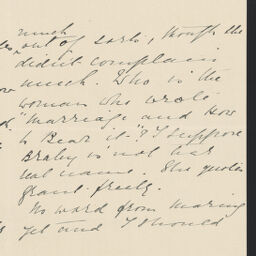 much
out of sorts, though she
didn't complain
much. Who is the
woman who wrote
"Marriage and How
to Bear it"? I suppose
Braby is not her
real name. She quotes
Grant freely.
No word from Marine
yet and I should